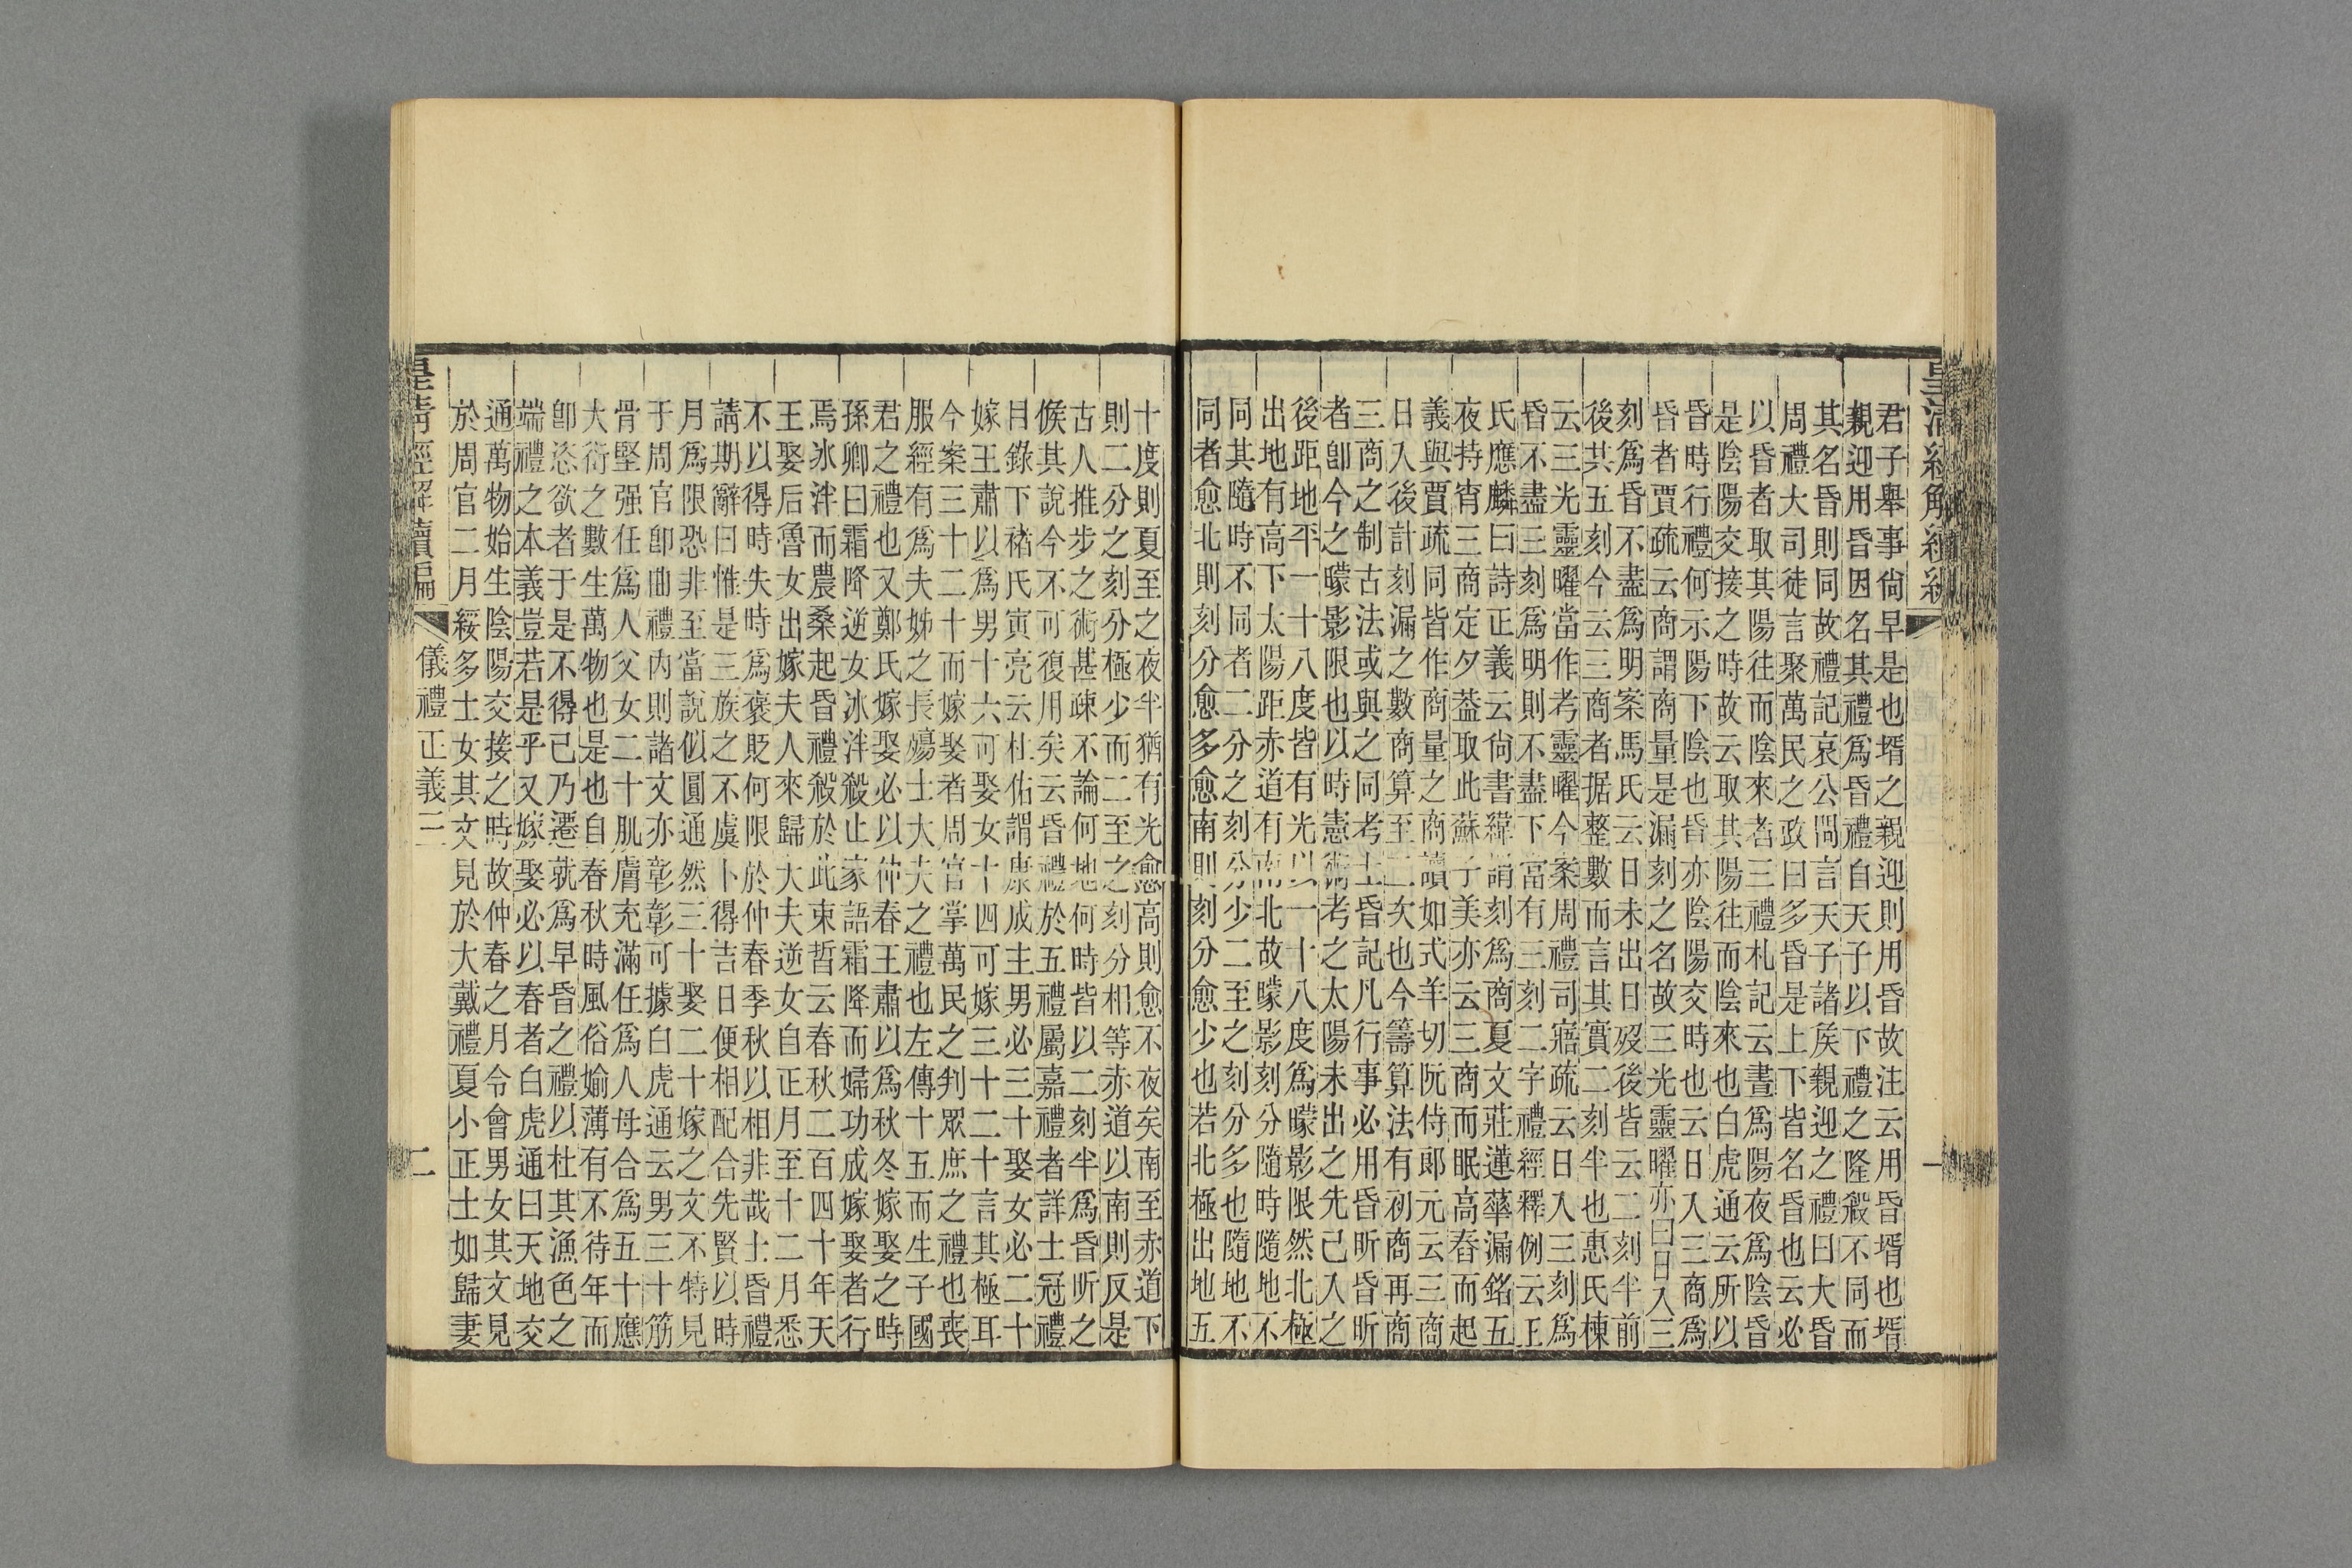 君子舉事尙早是也壻之親迎則用昏故注云用昏壻也壻
親迎用昏因名其禮爲昏禮自天子以下禮之隆殺不同而
其名昏則同故禮記哀公問言天子諸矦親迎之禮曰大昏
周禮大司徒言聚萬民之政曰多昏是上下皆名昏也云必
以昏者取其陽往而陰來者三禮札記云晝爲陽夜爲陰昏
是陰陽交接之時故云取其陽往而陰來也白虎通云所以
昏時行禮何示陽下陰也昏亦陰陽交時也云日入三商爲
昏者賈疏云商謂商量是漏刻之名故三光靈曜亦曰日入三
刻爲昏不盡爲明案馬氏云日未出日沒後皆云二刻半前
後共五刻今云三商者据整數而言其實二刻半也惠氏棟
云三光靈曜當作考靈曜今案周禮司寤疏云日入三刻爲
昏不盡三刻爲明則不盡下當有三刻二字禮經釋例云王
氏應麟曰詩正義云尙書緯謂刻爲商夏文莊蓮華漏銘五
夜持宵三商定夕葢取此蘇子美亦云三商而眠高舂而起
義與賈疏同皆作商量之商讀如式羊切阮侍郞元云三商
日入後計刻漏之數商算至二次也今籌算法有初商再商
三商之制古法或與之同考士昏記凡行事必用昏昕昏昕
者卽今之曚影限也以時憲術考之太陽未出之先已入之
後距地平一十八度皆有光以一十八度爲曚影限然北極
出地有高下太陽距赤道有南北故曚影刻分隨時隨地不
同其隨時不同者二分之刻分少二至之刻分多也隨地不
同者愈北則刻分愈多愈南則刻分愈少也若北極出地五
十度則夏至之夜半猶有光愈高則愈不夜矣南至赤道下
則二分之刻分極少而二至之刻分相等赤道以南則反是
古人推步之術甚疎不論何地何時皆以二刻半爲昏昕之
候其說今不可復用矣云昏禮於五禮屬嘉禮者詳士冠禮
日錄下褚氏寅亮云杜佑謂康成主男必三十娶女必二十
嫁王肅以爲男十六可娶女十四可嫁三十二十言其極耳
今案三十二十而嫁娶者周官掌萬民之判眾庶之禮也喪
服經有爲夫姊之長殤士大夫之禮也左傳十五而生子國
君之禮也又鄭氏嫁娶必以仲春王肅以爲秋冬嫁娶之時
孫卿曰霜降逆女冰泮殺止家語霜降而婦功成嫁娶者行
焉冰泮而農桑起昏禮殺於此束晳云春秋二百四十年天
王娶后魯女出嫁夫人來歸大夫逆女自正月至十二月悉
不以得時失時爲褒貶何限於仲春季秋以相非哉士昏禮
請期辭曰惟是三族之不虞卜得吉日便相配合先賢以時
月爲限恐非至當說似圓通然三十娶二十嫁之文不特見
于周官卽曲禮內則諸文亦彰彰可據白虎通云男三十筋
骨堅强任爲人父女二十肌膚充滿任爲人母合爲五十應
大衍之數生萬物也是也自春秋時風俗媮薄有不待年而
卽恣欲者于是不得已乃遷就爲早昏之禮以杜其漁色之
端禮之本義豈若是乎又嫁娶必以春者白虎通曰天地交
通萬物始生陰陽交接之時故仲春之月令會男女其文見
於周官二月綏多士女其文見於大戴禮夏小正士如歸妻
皇淸經解續編
儀禮正義三
二